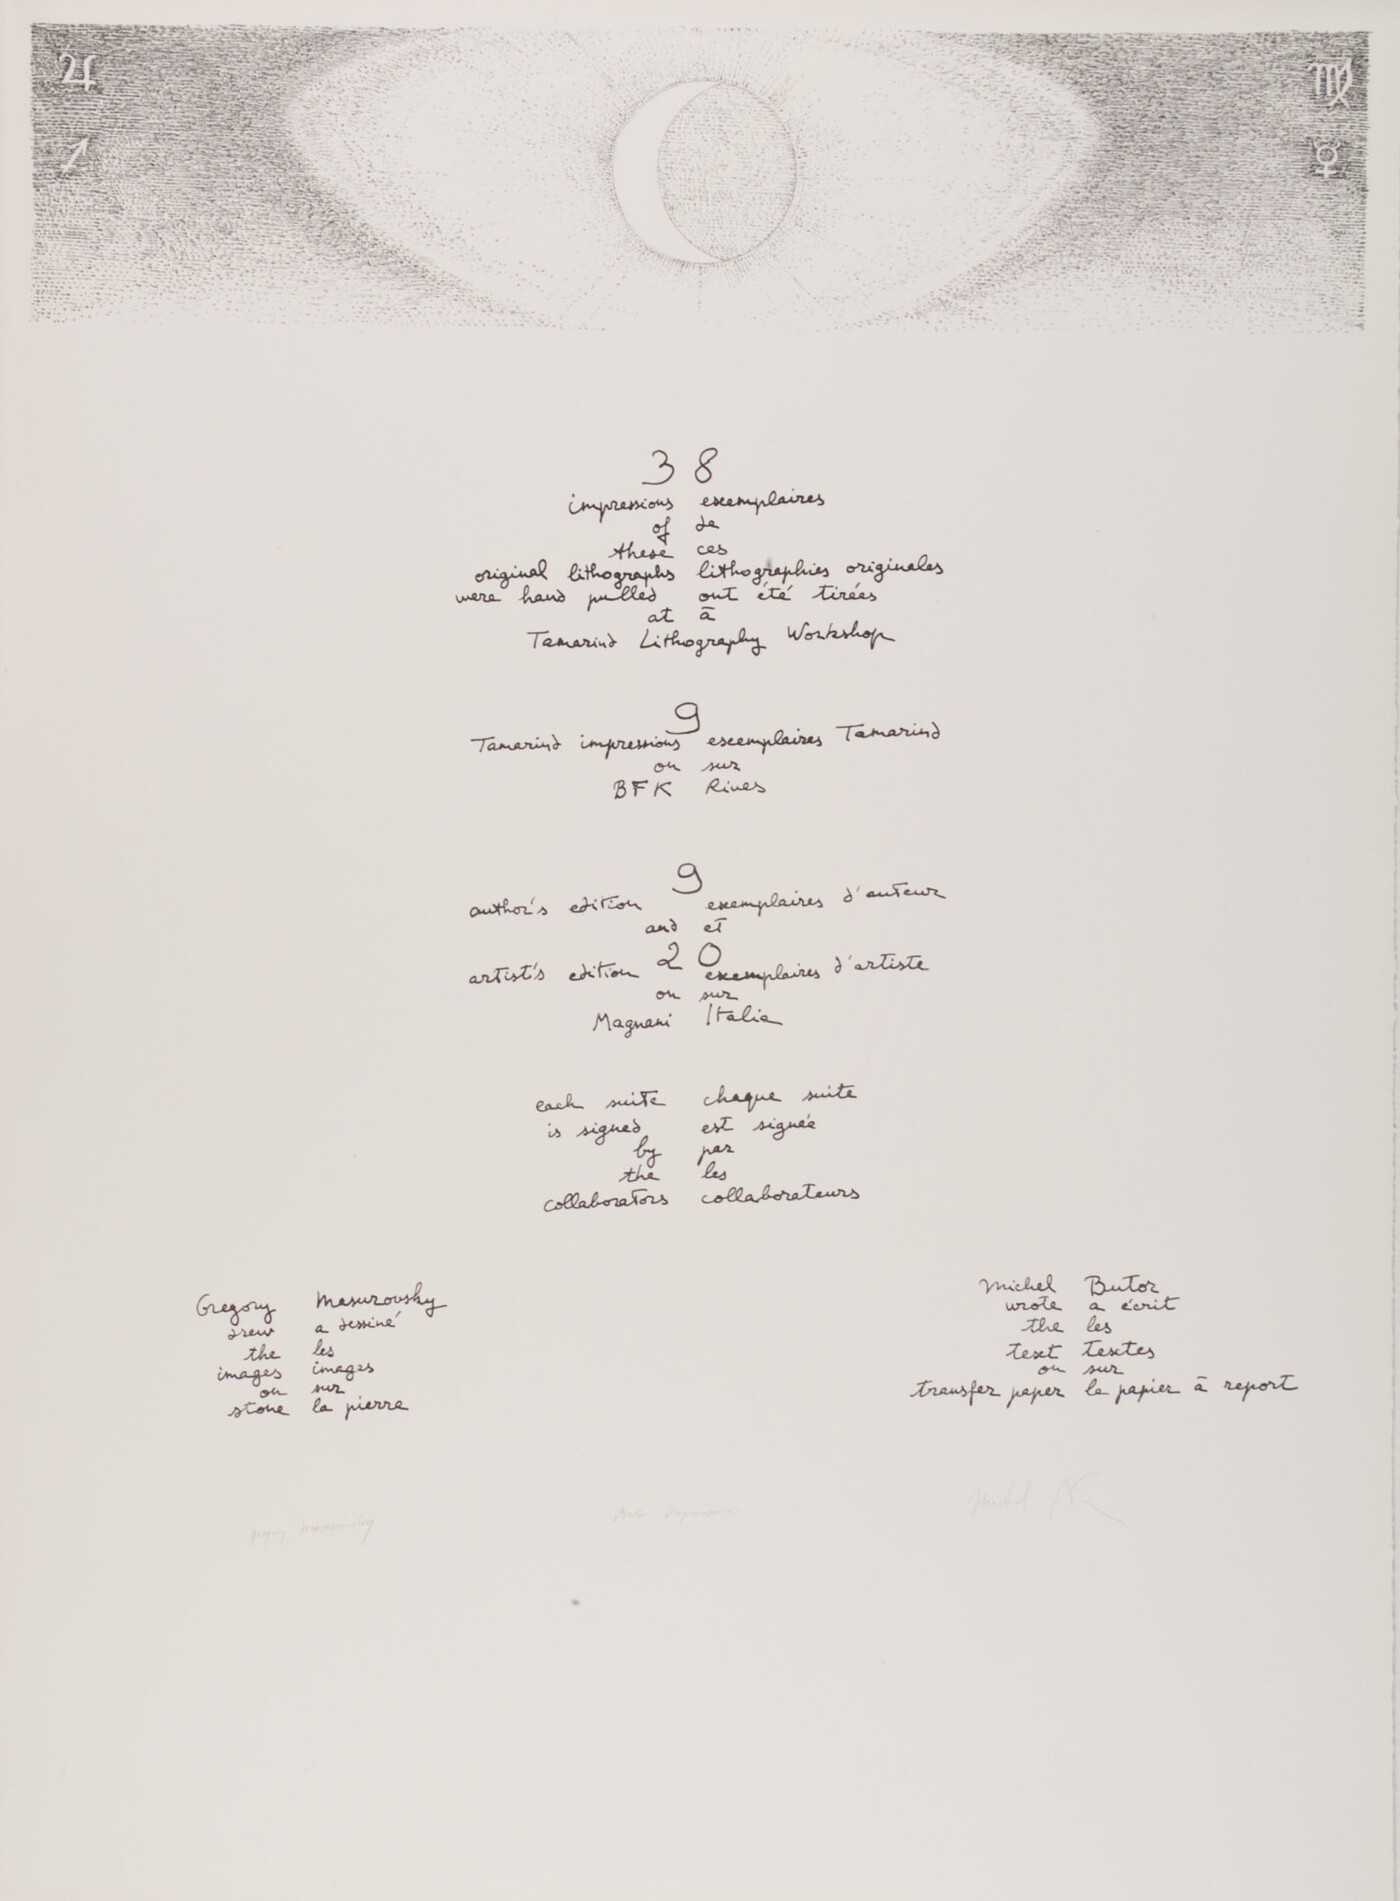 ♃ ♍
1 ☿
38
impressions exemplaires
of de
these ces
original lithographs lithographies originales
were hand pulled ont été tirées
at à
Tamarind Lithography Workshop
9
Tamarind impressions exemplaires Tamarind
on sur
BFK Rives
9
author's edition exemplaires d'auteur
and et
20
artist's edition exemplaires d'artiste
on sur
Magnani Italia
each suite chaque suite
is signed est signée
by par
the les
collaborators collaborateurs
Gregory Masurovsky
drew a dessiné
the les
images images
on sur
stone la pierre
Michel Butor
wrote a écrit
the les
text textes
on sur
transfer paper le papier à report
Gregory Masurovsky
Michel